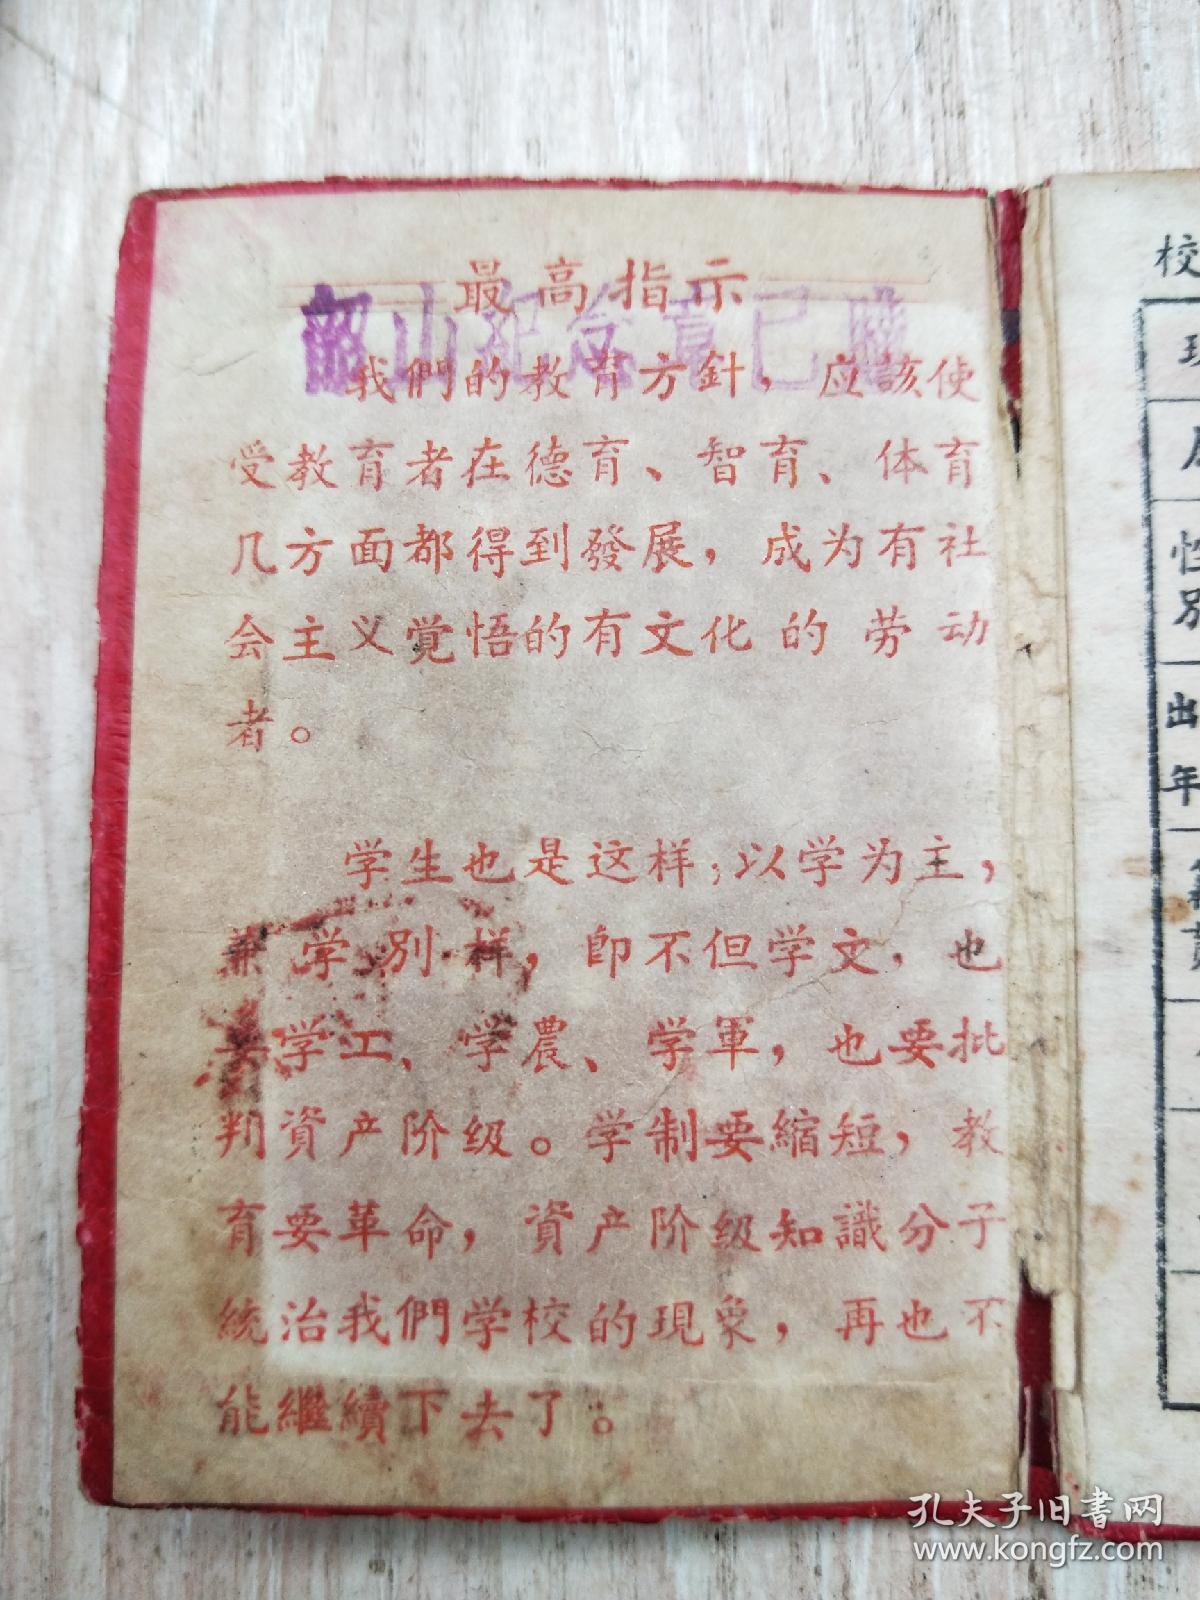 最高指示
韶山纪念章已
我們的教育方針，应該使
受教育者在德育、智育、体育
几方面都得到發展，成为有社
会主义覚悟的有文化的劳动
者。
学生也是这样，以学为主，
兼学别样，即不但学文，也
要学工、学農、学軍，也要批
判資产阶级。学制要縮短，教
育要革命，資产阶级知識分子
統治我們学校的現象，再也不
能繼續下去了。
校
性
别
出
年
孔夫子旧書网
www.kongfz.com